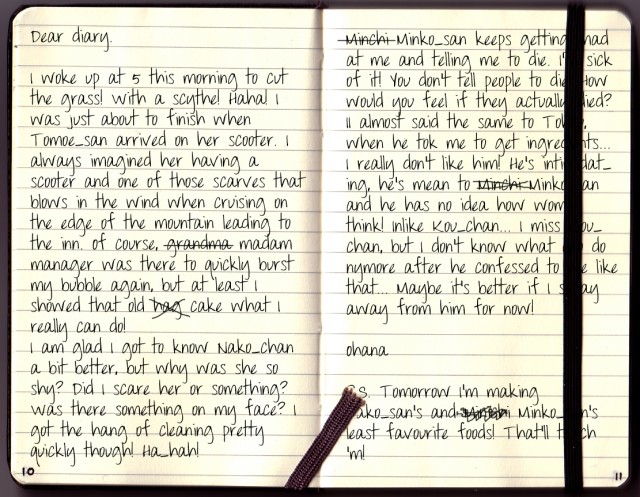 Dear diary.
I woke up at 5 this morning to cut
the grass! with a scythe! Haha! I
was just about to finish when
Tomoe_san arrived on her scooter. I
always imagined her having a
scooter and one of those scarves that
blows in the wind when cruising on
the edge of the mountain leading to
the inn. of course, grandma madam
manager was there to quickly burst
my bubble again, but at least I
showed that old hag cake what I
really can do!
I am glad I got to know Nako_chan
a bit better, but why was she so
shy? Did I scare her or something?
was there something on my face? I
got the hang of cleaning pretty
quickly though! Ha_hah!
10
Minchi Minko_san keeps getting mad
at me and telling me to die. I'm sick
of it! You don't tell people to die. How
would you feel if they actually died?
II almost said the same to
when he tok me to get ingredients...
I really don't like him! He's intimidat_
ing, he's mean to Minchi Minko_san
and he has no idea how women
think! Inlike Kou_chan... I miss Kou_
chan, but I don't know what to do
nymore after he confessed to me like
that... Maybe it's better if I stay
away from him for now!
ohana
P.S. Tomorrow I'm making
Nako_san's and Minchi Minko_san's
least favourite foods! That'll teach
'm!
11